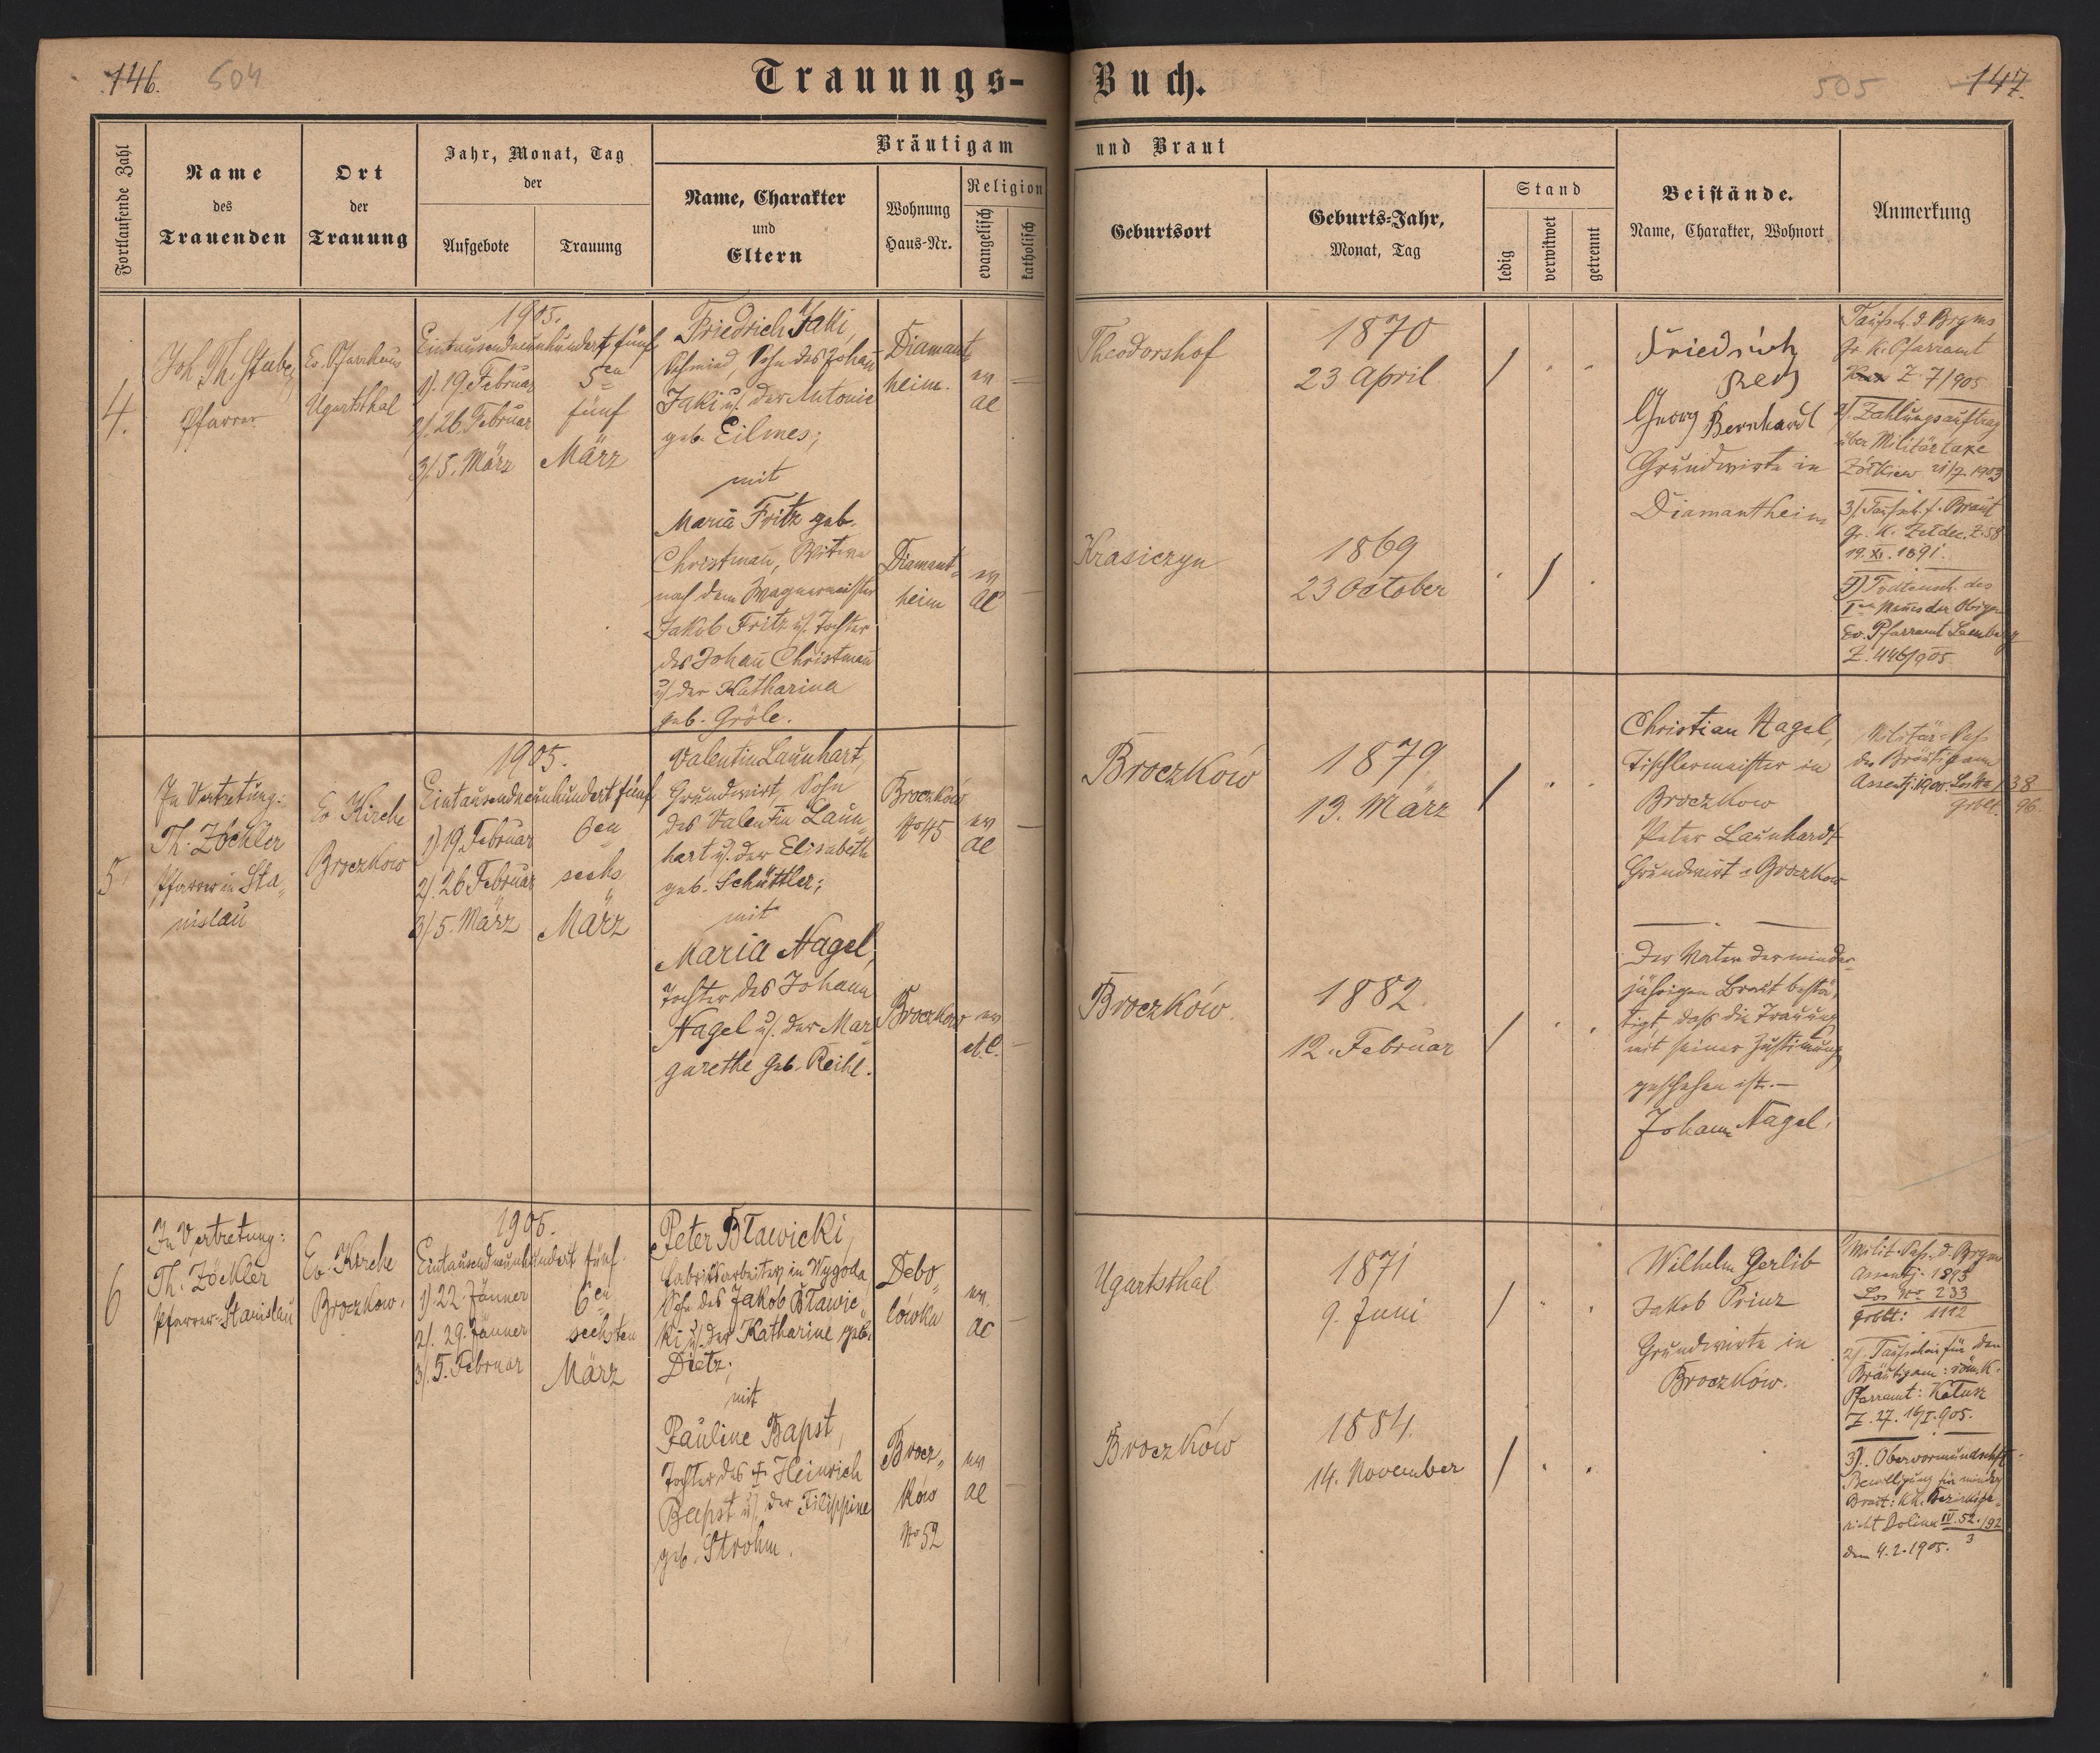 146. 504
Trauungs-
Buch.
505 147.
Fortlaufende Zahl
Name
des
Trauenden
Ort
der
Trauung
Jahr, Monat, Tag
der
Aufgebote
Trauung
Bräutigam
und Braut
Name, Charakter
und
Eltern
Wohnung
Haus-Nr.
Religion
evangelisch
katholisch
Geburtsort
Geburts-Jahr,
Monat, Tag
Stand
ledig
verwitwet
getrennt
Beistände.
Name, Charakter, Wohnort
Anmerkung
4.
Joh. Th. Stube
Pfarrer
Ev. Pfarrhaus
Ugartsthal
1905.
Eintausendneunhundert fünf
1). 19. Februar
2). 26. Februar
3). 5. März
5en
fünf
März
Friedrich Jaki,
Schmied, Sohn des Johañ
Jaki u. der Antonie
geb. Eilmes;
mit
Maria Fritz geb.
Christman, Witwe
nach dem Wagnermeister
Jakob Fritz u. Tochter
des Johañ Christmañ
u. der Katharina
geb. Gröle.
Diamant
heim.
ev
AC
—
Diamant=
heim
ev
AC
—
Theodorshof
1870
23 April
/ . .
Krasiczyn
1869
23 October
. / .
Friedrich
Betz
Georg Bernhardt
Grundwirte in
Diamantheim
Taufsch. d. Brgms
Gr. K. Pfarramt
Z. 7/905
2). Zahlungsauftrag
über Militärtaxe
Żółkiew 21/7. 1903
3). Taufsch. f. Braut
Gr. K. Z. 58
19. XI. 1891.
4) Todtensch. des
Iten Mañes der Obigen
Ev. Pfarramt Lemberg
Z. 446/905
5
In Vertretung:
Th. Zöckler
Pfarrer in Sta„
nislau
Ev. Kirche
Broczkow
1905.
Eintausendneunhundert fünf
1). 19. Februar
2). 26. Februar
3). 5. März
6en
sechs
März
Valentin Launhart,
Grundwirt, Sohn
des Valentin Laun
hart u. der Elisabeth
geb. Schüttler;
mit
Maria Nagel,
Tochter des Johann
Nagel u. der Mar
garethe geb. Reihl.
Broczków
No 45
ev
AC
—
Broczków
ev
A.C.
—
Broczków
1879.
13. März
/ . .
Broczków.
1882.
12. Februar
/ . .
Christian Nagel,
Tischlermeister in
Broczkow
Peter Launhardt
Grundwirt = Broczkow
Der Vater der minder=
jährigen Braut bestä„
tigt daß die Trauung
mit seiner Zustimung
geschehen ist. —
Johann Nagel.
Militär-Pass
des Bräutigams
Assentj. 1900. 138
Grbbl. 96.
6
In Vertretung:
Th. Zöckler
Pfarrer=Stanislau
Ev. Kirche
Broczkow.
1905.
Eintausendneunhundert fünf.
1). 22. Jänner
2). 29. Jänner
3). 5. Februar
6en
sechsten
März
Peter Bławicki,
Fabriksarbeiter in Wygoda
Sohn des Jakob Bławic„
ki u. der Katharine geb.
Dietz;
mit
Pauline Bapst,
Tochter des † Heinrich
Bapst u. der Filippine
geb. Strohm.
Debo„
lówka
ev.
AC
—
Brocz„
ków
No 52
ev
AC
—
Ugartsthal
1871
9. Juni
/ . .
Broczków
1884.
14. November
/ . .
Wilhelm Gerlib
Jakob Prinz
Grundwirte in
Broczkow.
1) Milit. Pass. d. Brgm
Assentj. 1893
Los No 233
Grbbl: 1112
2). Taufschein für den
Bräutigam: röm. K.
Pfarramt: Kałusz
Z. 27. 16/I. 905.
3). Obervormundschft
Bewilligung für mindj
Braut: kk. Bezirksge„
richt Dolina IV. 52./92
3
dem 4. 2. 1905.